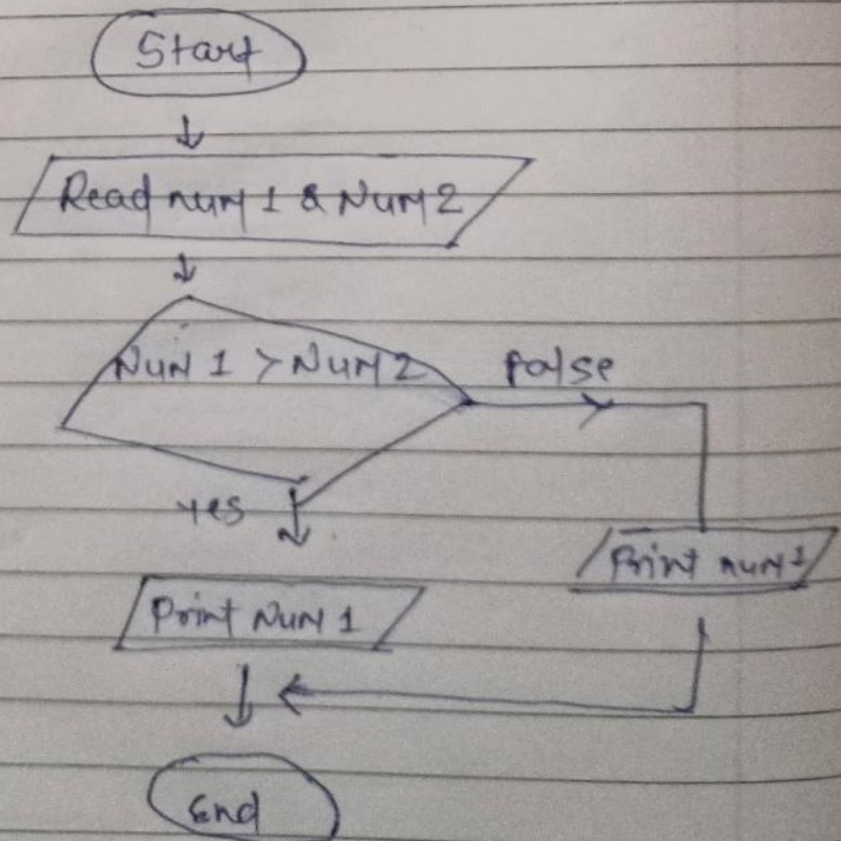 Start
Read num 1 & Num 2
Num 1 > Num 2
false
yes
Print num 1
Print Num 1
End